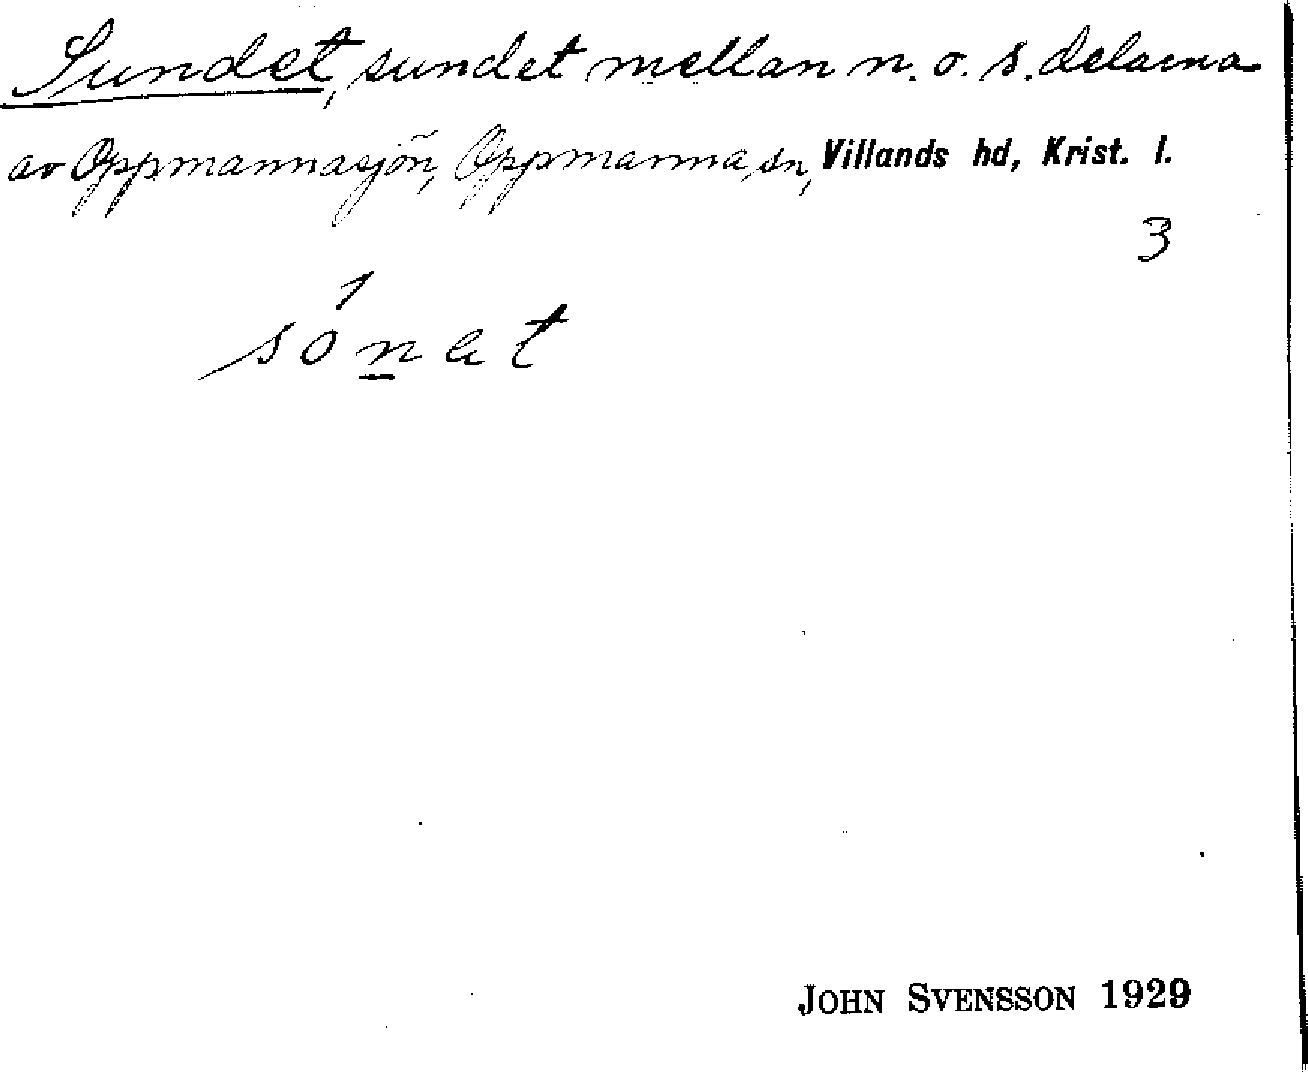 Sundet, sundet mellan n. o. s. delarna
av Oppmannasjön, Oppmanna sn, Villands hd, Krist. l.
3
1
so n̲ at
JOHN SVENSSON 1929